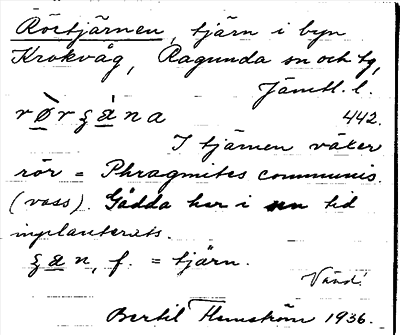 Rörtjärnen, tjärn i byn
Krokvåg, Ragunda sn och tg,
Jämtl. l.
442.
I tjärnen växer
rör = Phragmites communis.
(vass). Gädda har i sen tid
inplanterats.
f. = tjärn.
Vänd!
Bertil Flemström 1936.